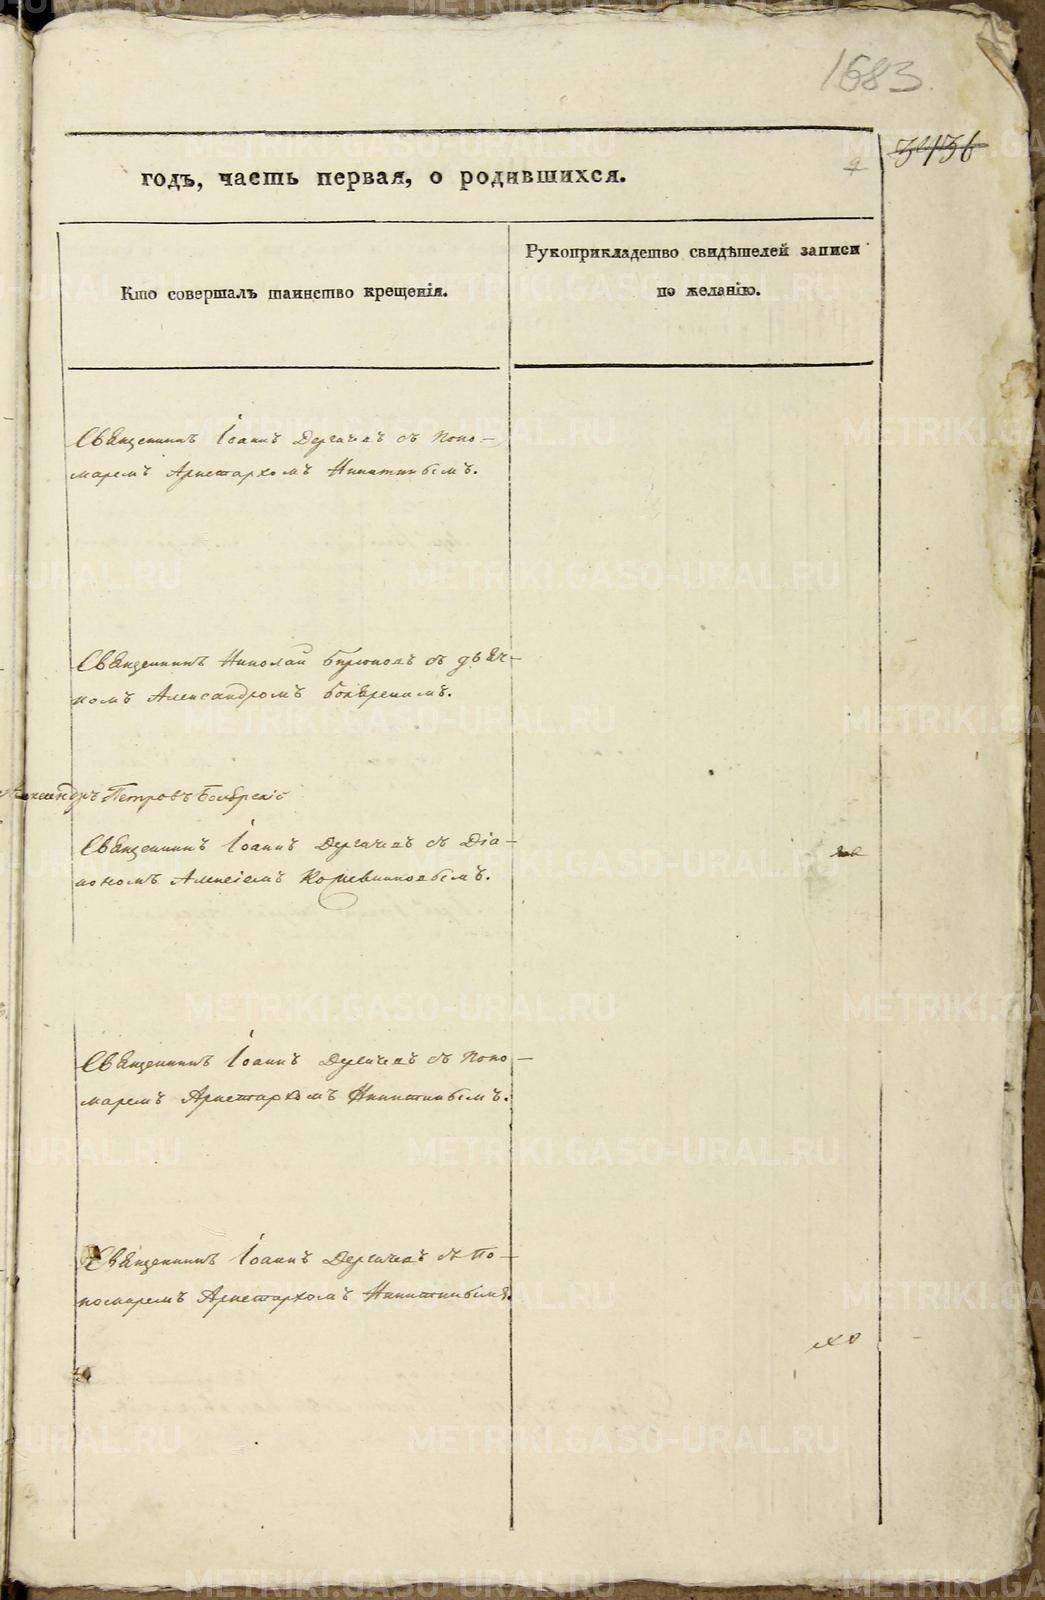 1683
годъ, часть первая, о родившихся.
Кто совершалъ таинство крещенія.
Рукоприкладство свидѣтелей записи
по желанію.
Священникъ Іоаннъ Дергачевъ съ поно-
маремъ Аристархомъ Никитинымъ.
Священникъ Николай Бирюковъ съ дьяч-
комъ Александромъ Бояренимъ.
Александръ Петровъ Боярскій
Священникъ Іоаннъ Дергачевъ съ Діа-
кономъ Алексіемъ
Священникъ Іоаннъ Дергачевъ съ поно-
маремъ Аристархомъ Никитинымъ.
Священникъ Іоаннъ Дергачевъ съ по-
номаремъ Аристархомъ Никитинымъ.
METRIKI.GASO-URAL.RU